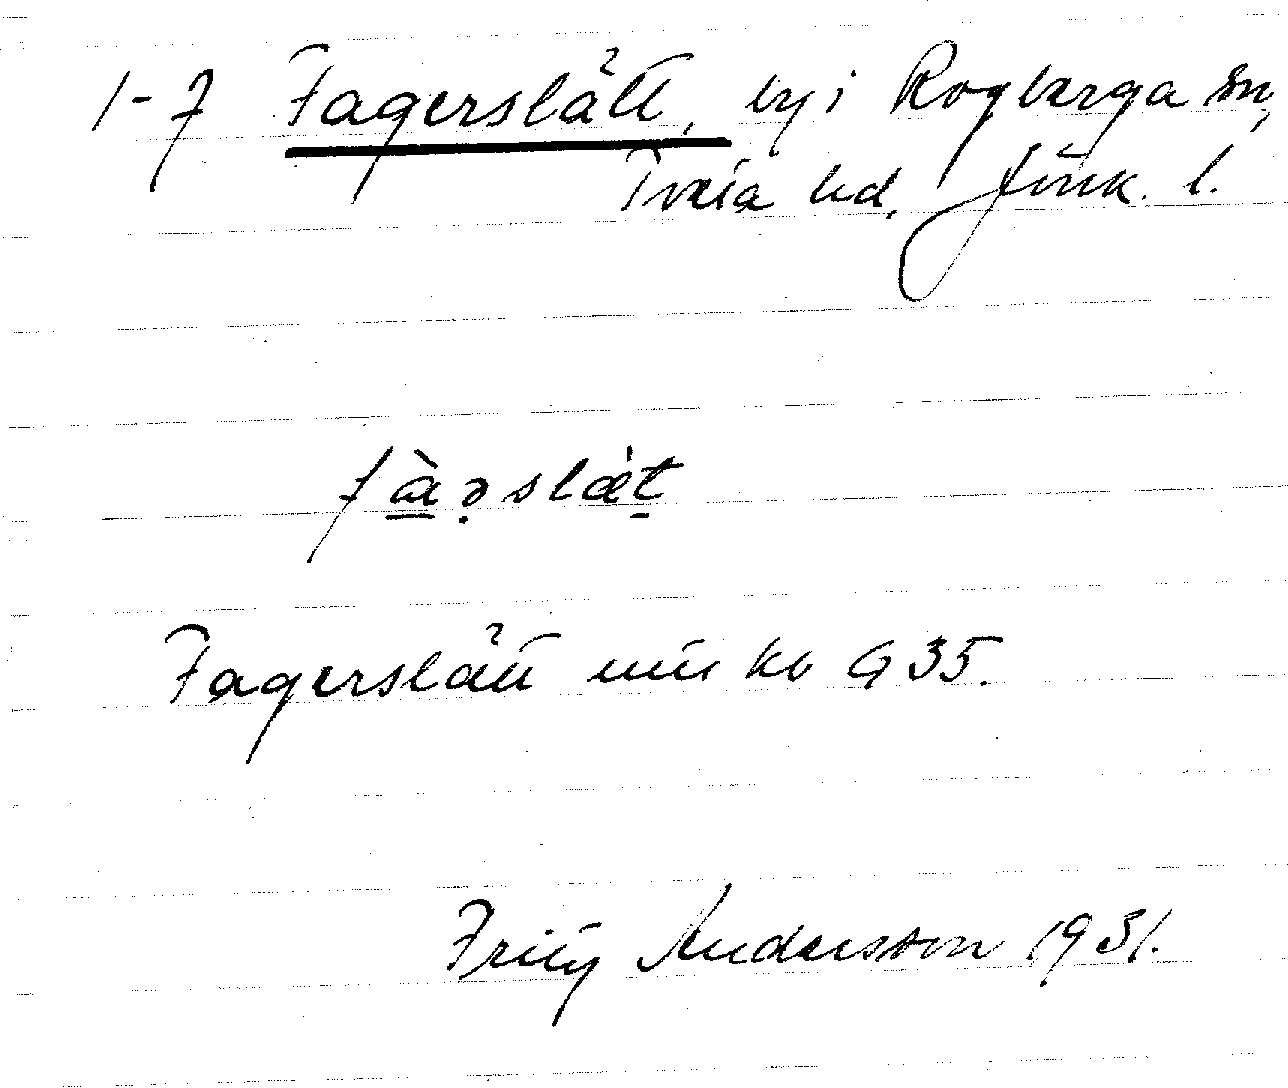 1-7 Fagerslätt, by i Rogberga sn,
Tveta hd, Jönk. l.
fà̱ə̣slæ̀t̠
Fagerslätt utt. kb G 35.
Fritz Andersson 1931.